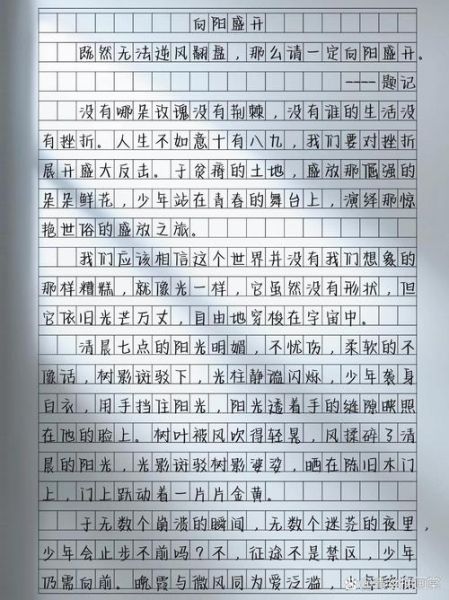 向阳盛开
既然无法逆风翻盘，那么请一定向阳盛开。
----题记
没有哪朵玫瑰没有荆棘，没有谁的生活没
有挫折。人生不如意十有八九，我们要对挫折
展开盛大反击。于贫瘠的土地，盛放那倔强的
朵朵鲜花，少年站在青春的舞台上，演绎那惊
艳世俗的盛放之旅。
我们应该相信这个世界并没有我们想象的
那样糟糕，就像光一样，它虽然没有形状，但
它依旧光芒万丈，自由地穿梭在宇宙中。
清晨七点的阳光明媚，不忧伤，柔软的不
像话，树影斑驳下，光柱静谧闪烁，少年袭身
白衣，用手挡住阳光，阳光透着手的缝隙照
在他的脸上。树叶被风吹得轻晃，风揉碎了清
晨的阳光，光影斑驳树影婆娑，晒在陈旧木门
上，门上跃动着一片片金黄。
于无数个崩溃的瞬间，无数个迷茫的夜里，
少年会止步不前吗？不，征途不是禁区，少年
仍需向前。晚霞与微风同为爱泛滥，少年